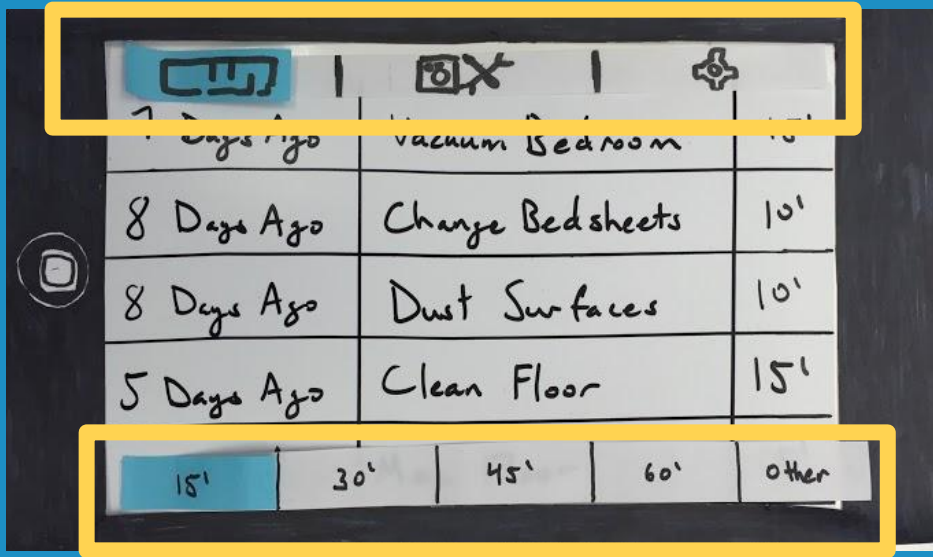 7 Days Ago Vacuum Bedroom 15'
8 Days Ago Change Bedsheets 10'
8 Days Ago Dust Surfaces 10'
5 Days Ago Clean Floor 15'
15' 30' 45' 60' Other